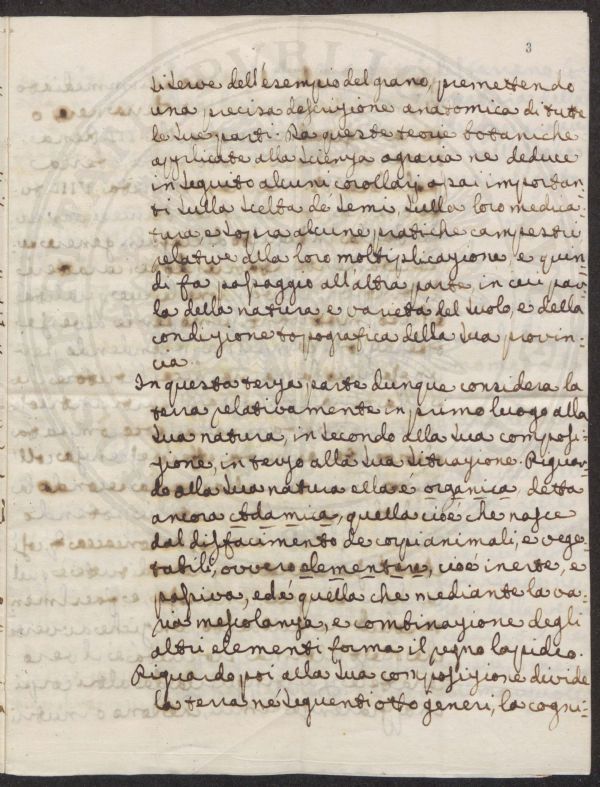 3
si serve dell'esempio del grano, premettendo
una precisa descrizione anatomica di tutte
le sue parti. Da queste teorie botaniche
applicate alla scienza agraria ne deduce
in seguito alcuni corollarj assai importan-
ti sulla scelta de semi, sulla loro medica-
tura, e sopra alcune pratiche campestri
relative alla loro moltiplicazione, e quin-
di fa passaggio all'altra parte, in cui par-
la della natura, e varietà del suolo, e della
condizione topografica della sua provin-
cia.
In questa terza parte dunque considera la
terra relativamente in primo luogo alla
sua natura, in secondo alla sua composi-
zione, in terzo alla sua situazione. Riguar-
do alla sua natura ella è organica, detta
ancora quella cioè che nasce
dal disfacimento de corpi animali, e vege-
tabili, ovvero elementare, cioè inerte, e
passiva, ed è quella che mediante la va-
ria mescolanza, e combinazione degli
altri elementi forma il regno lapideo.
Riguardo poi alla sua composizione divide
la terra né seguenti otto generi, la cogni-